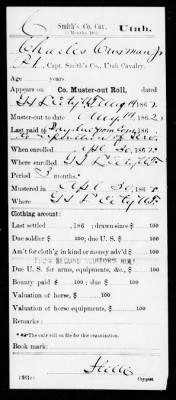 Smith's Co. Cav. Utah.
Charles Crisman Jr.
Pvt., Capt. Smith's Co., Utah Cavalry.
Age years.
Appears on Co. Muster-out Roll,
G S L City U T Aug 14 1862.
Muster-out to Aug 14, 1862.
Last paid to
When enrolled Apl 30, 1862.
Where enrolled G S L City U T
Period 3 months.
Mustered in Apl 30, 1862.
Where G S L City U T
Clothing account:
Last settled , 186 ; drawn since $ 100
Due soldier $ 100; due U. S. $ 100
Am't for cloth'g in kind or money adv'd $ 100
Due U. S. for arms, equipments, &c., $ 100
Bounty paid $ 100; due $ 100
Valuation of horse, $ 100
Valuation of horse equipments, $ 100
Remarks:
Book mark:
Copyist.